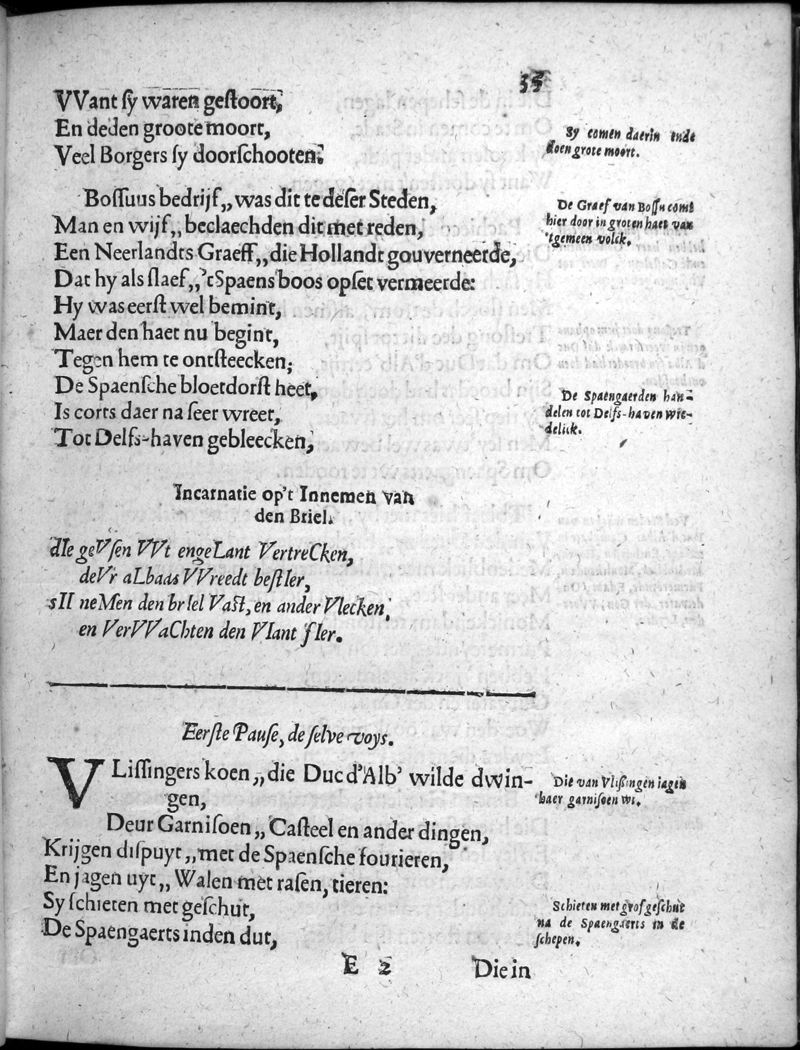 35
VVant ſy waren geſtoort,
En deden groote moort,
Veel Borgers ſy doorſchooten.
Sy comen daerin ende
doen grote moort.
Boſſuus bedrijf,, was dit te deſer Steden,
Man en wijf,, beclaechden dit met reden,
Een Neerlandts Graeff,, die Hollandt gouverneerde,
Dat hy als ſlaef,, 'tSpaens boos opſet vermeerde:
Hy was eerſt wel bemint,
Maer den haet nu begint,
Tegen hem te ontſteecken;
De Spaenſche bloetdorſt heet,
Is corts daer na ſeer wreet,
Tot Delfs-haven gebleecken,
De Graef van Boſſu comt
hier door in groten haet van
'tgemeen volck.
De Spaengaerden han-
delen tot Delfs-haven wre-
delick.
Incarnatie op't Innemen van
den Briel.
dIe geVſen VVt engeLant VertreCken,
deVr aLbaas VVreedt beſtIer,
sII neMen den brIel Vaſt, en ander Vlecken,
en VerVVaChten den VIant fIer.
Eerſte Pauſe, de ſelve voys.
VLiſſingers koen,, die Duc d'Alb' wilde dwin-
gen,
Deur Garniſoen,, Caſteel en ander dingen,
Krijgen diſpuyt,, met de Spaenſche fourieren,
En jagen uyt,, Walen met raſen, tieren:
Sy ſchieten met geſchut,
De Spaengaerts inden dut,
Die van Vlißingen iagen
haer garniſoen wt.
Schieten met grof geſchut
na de Spaengaerts in de
ſchepen.
E 2
Die in